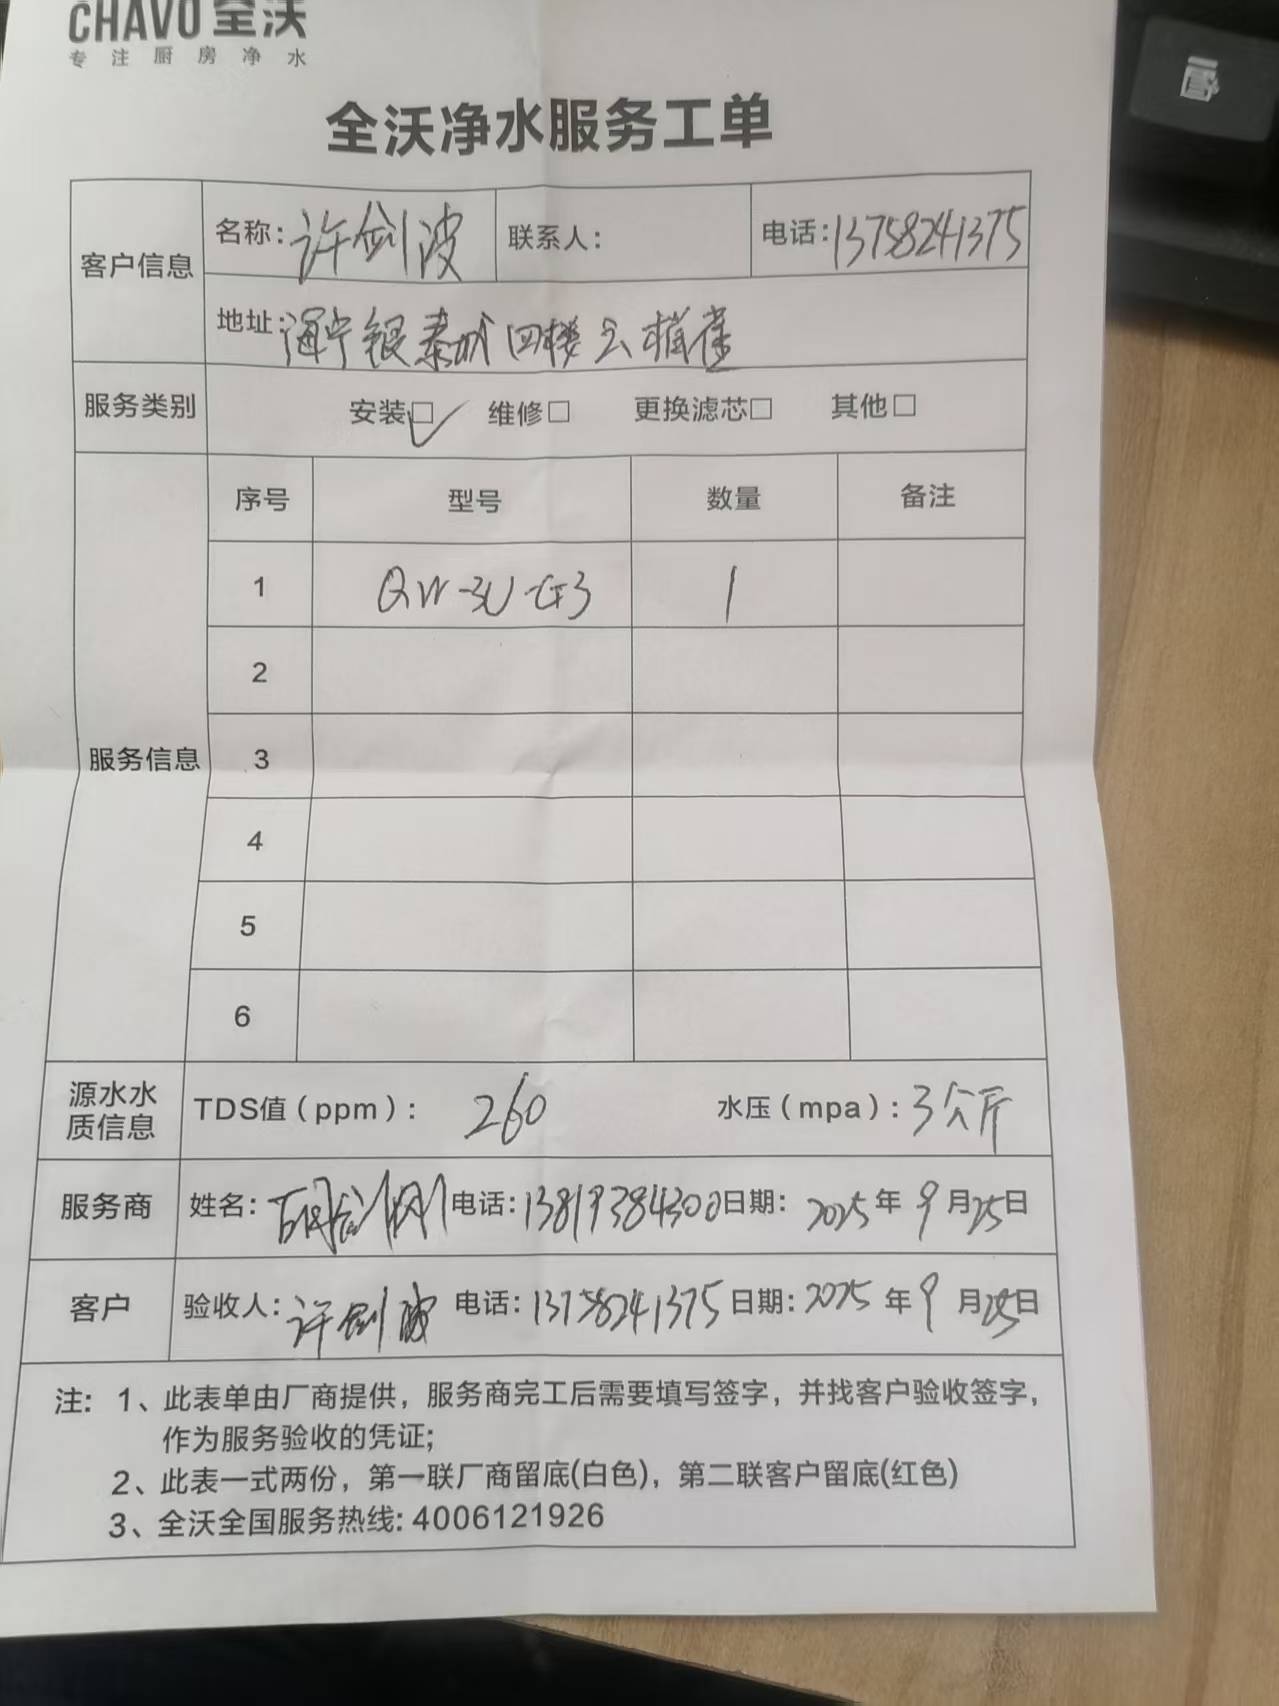 CHAVO 全沃
专注厨房净水
全沃净水服务工单
客户信息
名称：许剑波 联系人： 电话：13758241375
地址：海宁银泰城四楼云
服务类别 安装☑ 维修□ 更换滤芯□ 其他□
服务信息
序号 型号 数量 备注
1 QW-3U-G3 1
2
3
4
5
6
源水水质信息 TDS值（ppm）： 260 水压（mpa）：3公斤
服务商 姓名： 电话：13819384300 日期：2025年9月25日
客户 验收人：许剑波 电话：13758241375 日期：2025年9月25日
注： 1、此表单由厂商提供，服务商完工后需要填写签字，并找客户验收签字，
作为服务验收的凭证；
2、此表一式两份，第一联厂商留底(白色)，第二联客户留底(红色)
3、全沃全国服务热线：4006121926